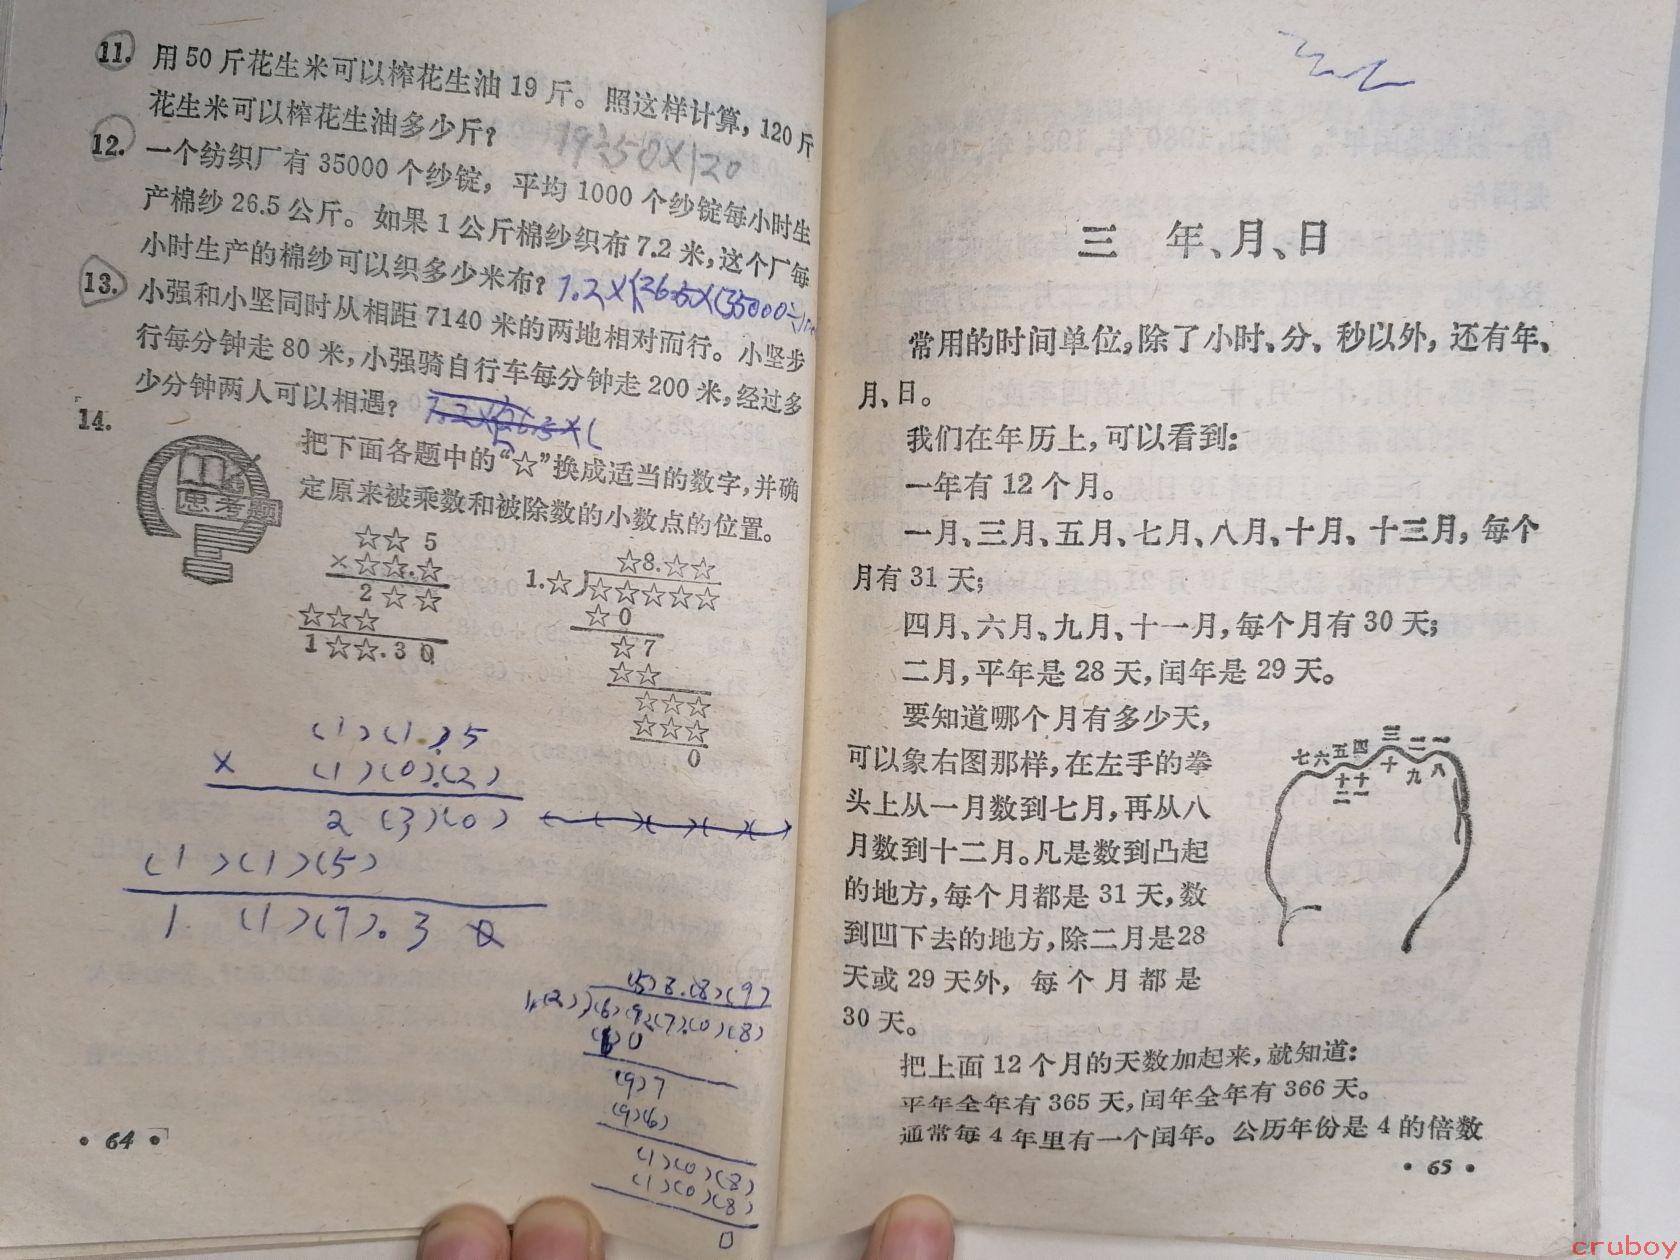 11. 用50斤花生米可以榨花生油19斤。照这样计算,120斤
花生米可以榨花生油多少斤?
19÷50×120
12. 一个纺织厂有35000个纱锭,平均1000个纱锭每小时生
产棉纱26.5公斤。如果1公斤棉纱织布7.2米,这个厂每
小时生产的棉纱可以织多少米布?
13. 小强和小坚同时从相距7140米的两地相对而行。小坚步
行每分钟走80米,小强骑自行车每分钟走200米,经过多
少分钟两人可以相遇?
14.
思考题
把下面各题中的“☆”换成适当的数字,并确
定原来被乘数和被除数的小数点的位置。
☆☆5
×☆☆.☆
2☆☆
☆☆☆
1☆☆.30
☆8.☆☆
1.☆)☆☆☆☆☆
☆0
☆7
☆☆
☆☆☆
☆☆☆
0
(1)(1).5
×(1)(0).(2)
2(3)(0)
(1)(1)(5)
1(1)(7).30
(5)8.(8)(9)
1.(2))(6)(9).(7)(0)(8)
(6)0
(9)7
(9)(6)
(1)(0)(8)
(1)(0)(8)
0
·64·
三 年、月、日
常用的时间单位,除了小时、分、秒以外,还有年、
月、日。
我们在年历上,可以看到:
一年有12个月。
一月、三月、五月、七月、八月、十月、十二月,每个
月有31天;
四月、六月、九月、十一月,每个月有30天;
二月,平年是28天,闰年是29天。
要知道哪个月有多少天,
可以象右图那样,在左手的拳
头上从一月数到七月,再从八
月数到十二月。凡是数到凸起
的地方,每个月都是31天,数
到凹下去的地方,除二月是28
天或29天外,每个月都是
30天。
七六五四三二一
十二 十一 十 九 八
把上面12个月的天数加起来,就知道:
平年全年有365天,闰年全年有366天。
通常每4年里有一个闰年。公历年份是4的倍数
·65·
cruboy